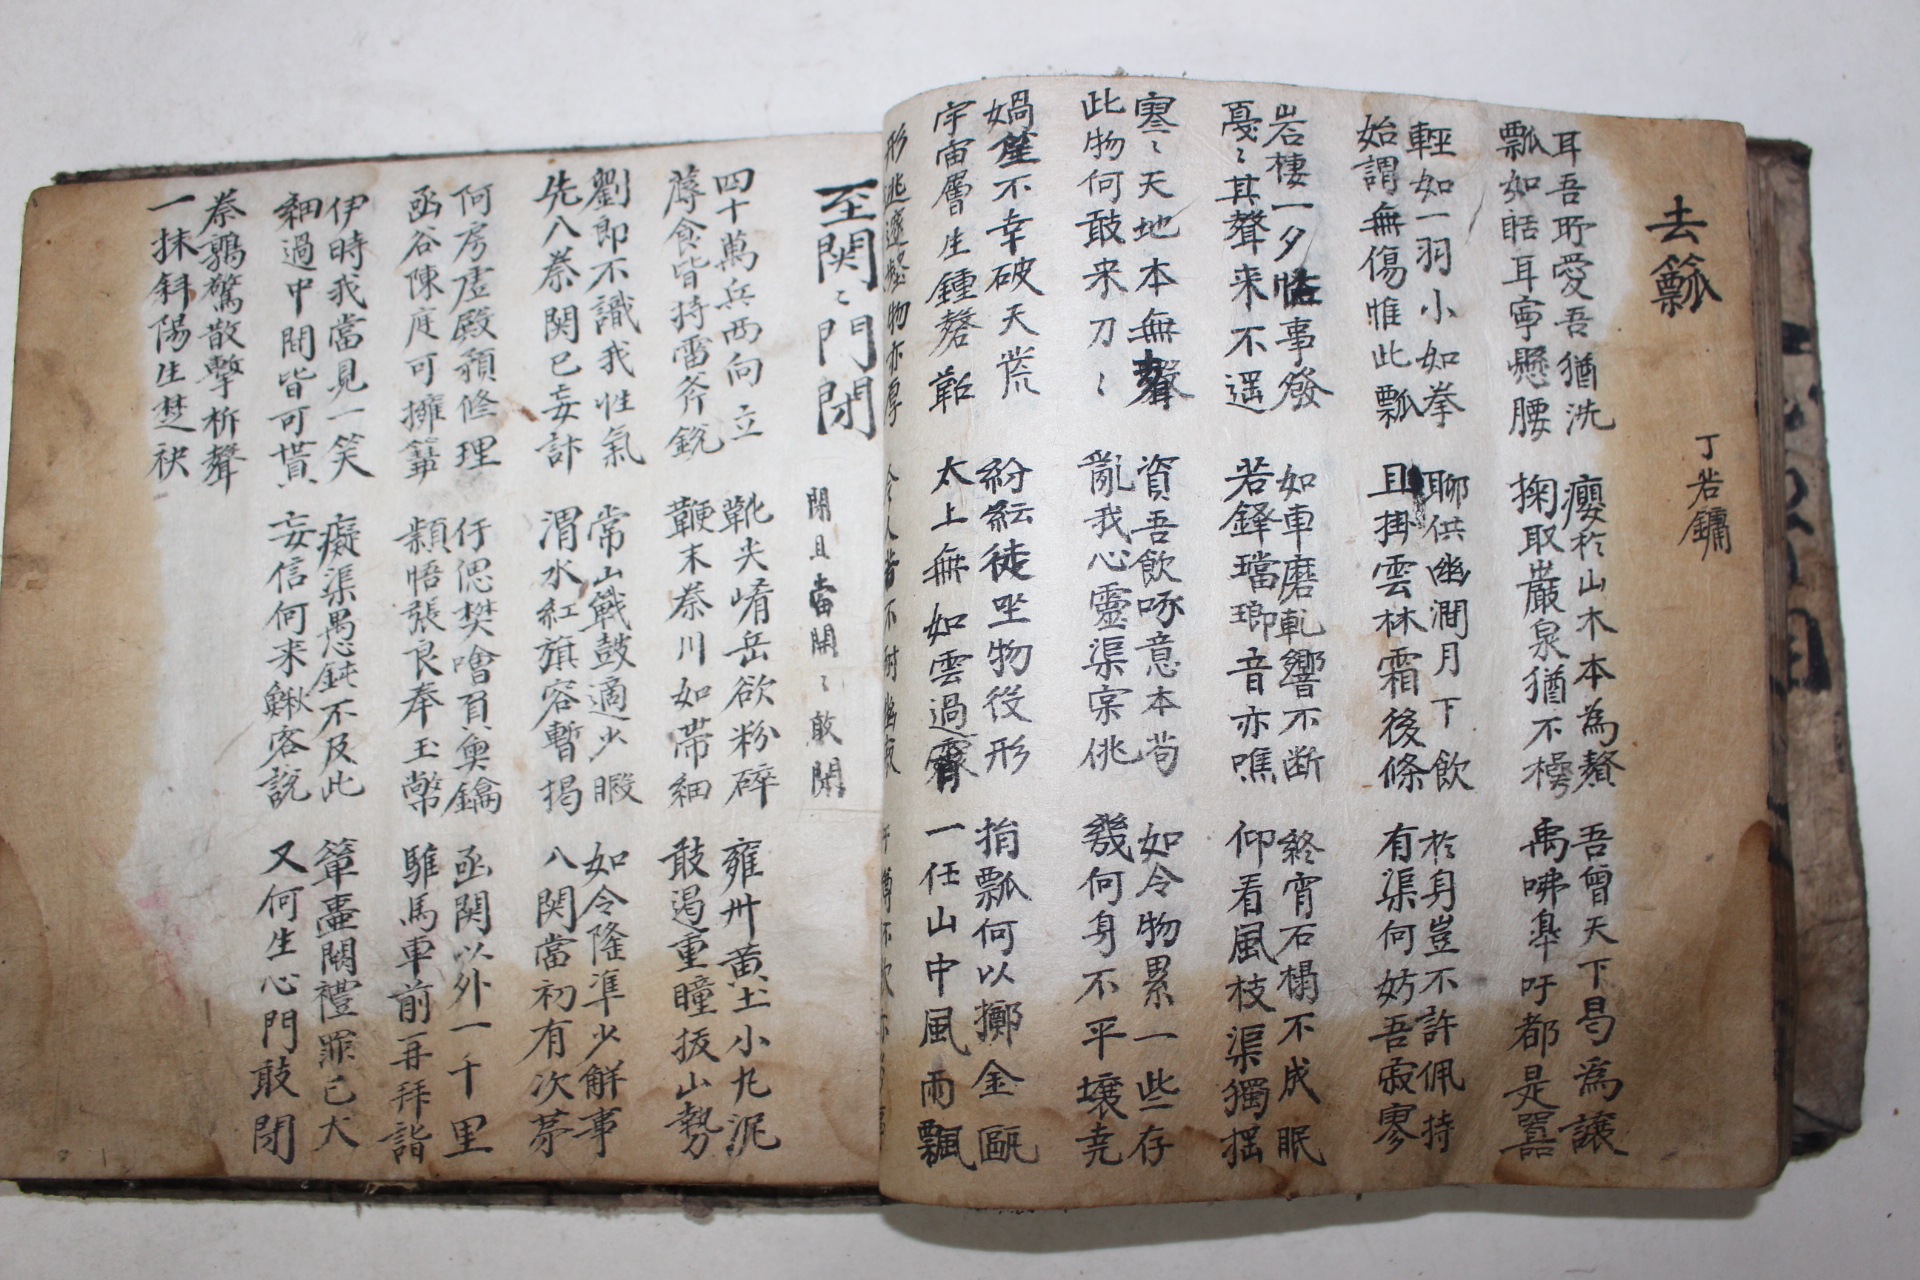 去瓢
丁若鏞
耳吾所愛吾猶洗
瓢如聒耳寧懸腰
癭於山木本為贅
掬取巖泉猶不橈
吾曾天下曷為讓
禹咈皐吁都是囂
輕如一羽小如拳
始謂無傷惟此瓢
聊供幽澗月下飲
且掛雲林霜後條
於身豈不許佩持
有渠何妨吾寂寥
岩棲一夕恠事發
戞〻其聲来不遥
如車磨軋響不断
若鐸璫瑯音亦噍
終宵石榻不成眠
仰看風枝渠獨搖
寥〻天地本無聲
此物何敢来刀〻
資吾飲啄意本苟
亂我心靈渠寀佻
如令物累一些存
幾何身不平壤堯
媧篁不幸破天荒
宇宙層生鍾磬鞀
紛紜徒坐物役形
太上無如雲過霄
捐瓢何以擲金甌
一任山中風雨飄
至関〻門閉
閉且當開〻敢閉
四十萬兵西向立
蓐食皆持雷斧銳
靴尖崤岳欲粉碎
鞭末秦川如帶細
雍州黄土小丸泥
敢遏重瞳拔山勢
劉郎不識我性氣
先入秦関已妄計
常山戰鼓適少暇
渭水紅旗容暫揭
如令隆準少解事
入関當初有次第
何房虛殿預修理
函谷陳庭可擁篲
仔偲樊噲負奧鑰
頼悟張良奉玉幣
函関以外一千里
騅馬車前再拜詣
伊時我當見一笑
細過中間皆可貰
癡渠愚鈍不及此
妄信何来鯫客說
簞壺闕禮罪已大
又何生心門敢閉
秦鶉驚散擊柝聲
一抹斜陽生楚袂